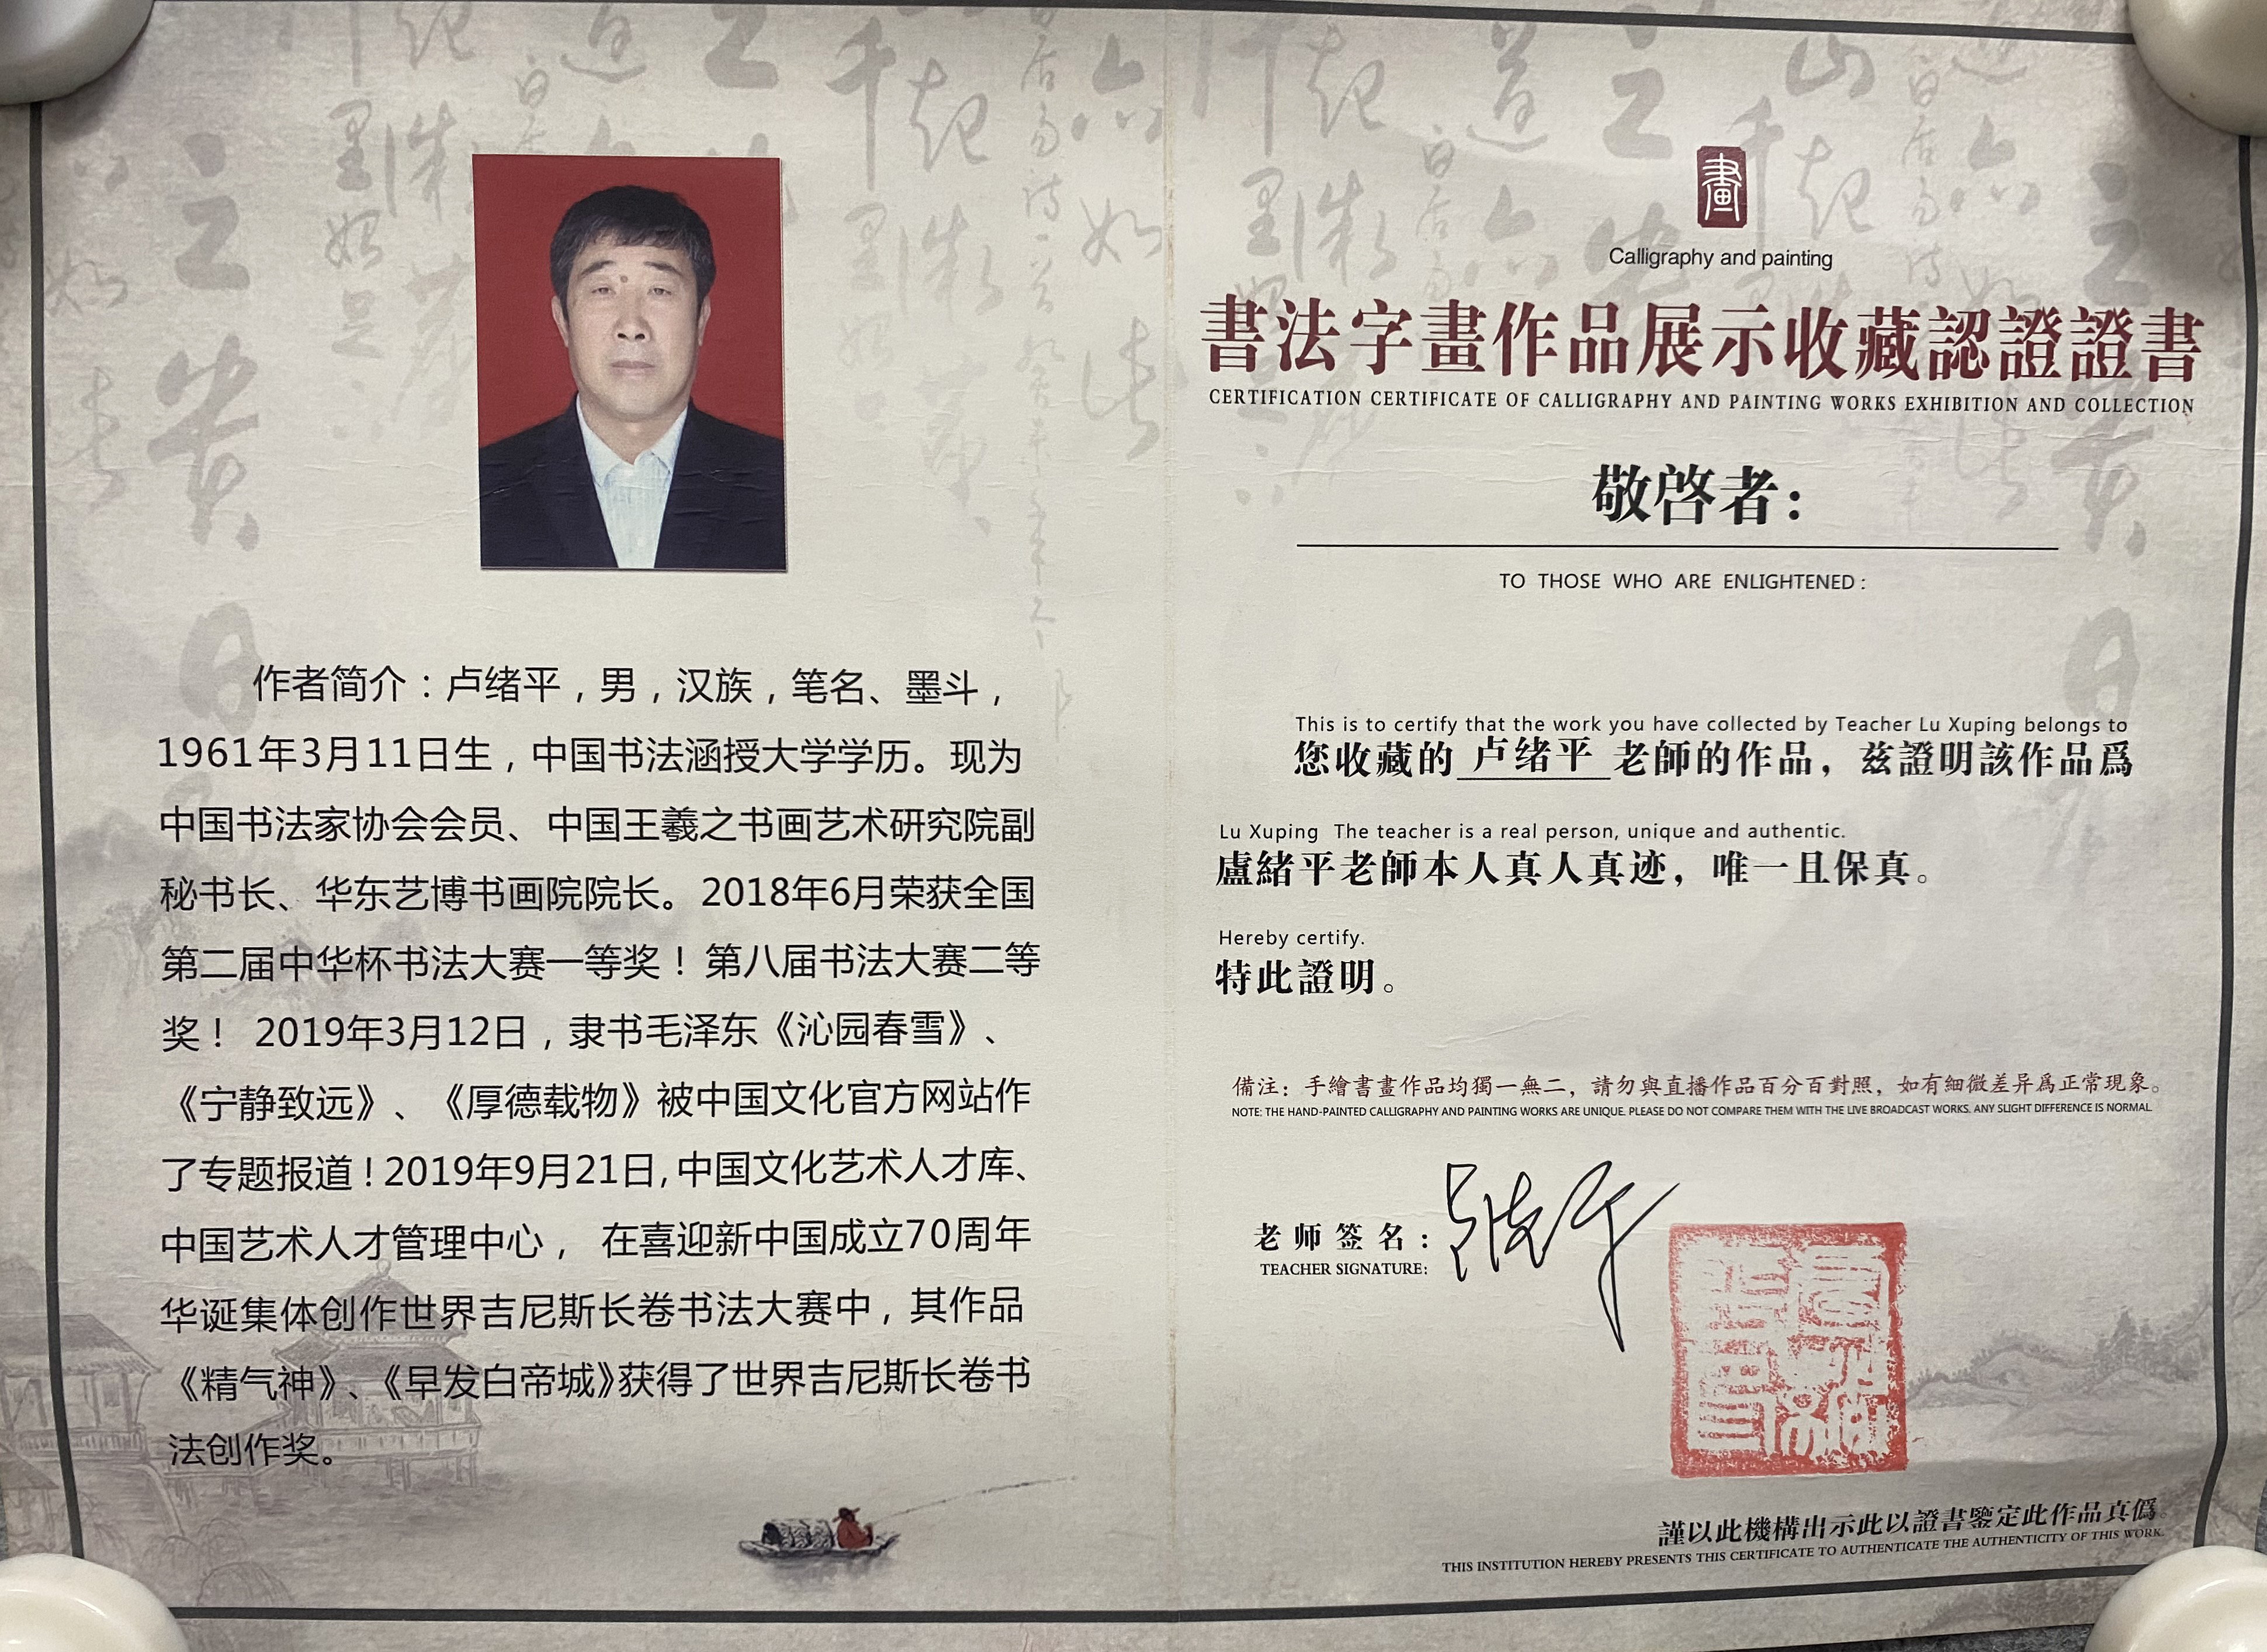 作者简介：卢绪平，男，汉族，笔名、墨斗，
1961年3月11日生，中国书法涵授大学学历。现为
中国书法家协会会员、中国王羲之书画艺术研究院副
秘书长、华东艺博书画院院长。2018年6月荣获全国
第二届中华杯书法大赛一等奖！第八届书法大赛二等
奖！ 2019年3月12日，隶书毛泽东《沁园春雪》、
《宁静致远》、《厚德载物》被中国文化官方网站作
了专题报道！2019年9月21日,中国文化艺术人才库、
中国艺术人才管理中心， 在喜迎新中国成立70周年
华诞集体创作世界吉尼斯长卷书法大赛中，其作品
《精气神》、《早发白帝城》获得了世界吉尼斯长卷书
法创作奖。
畫
Calligraphy and painting
書法字畫作品展示收藏認證證書
CERTIFICATION CERTIFICATE OF CALLIGRAPHY AND PAINTING WORKS EXHIBITION AND COLLECTION
敬啓者：
TO THOSE WHO ARE ENLIGHTENED :
This is to certify that the work you have collected by Teacher Lu Xuping belongs to
您收藏的 卢绪平 老師的作品，兹證明該作品爲
Lu Xuping The teacher is a real person, unique and authentic.
盧緒平老師本人真人真迹，唯一且保真。
Hereby certify.
特此證明。
備注：手繪書畫作品均獨一無二，請勿與直播作品百分百對照，如有細微差异爲正常現象。
NOTE: THE HAND-PAINTED CALLIGRAPHY AND PAINTING WORKS ARE UNIQUE. PLEASE DO NOT COMPARE THEM WITH THE LIVE BROADCAST WORKS. ANY SLIGHT DIFFERENCE IS NORMAL.
老师签名：卢绪平
TEACHER SIGNATURE:
謹以此機構出示此以證書鑒定此作品真僞。
THIS INSTITUTION HEREBY PRESENTS THIS CERTIFICATE TO AUTHENTICATE THE AUTHENTICITY OF THIS WORK.